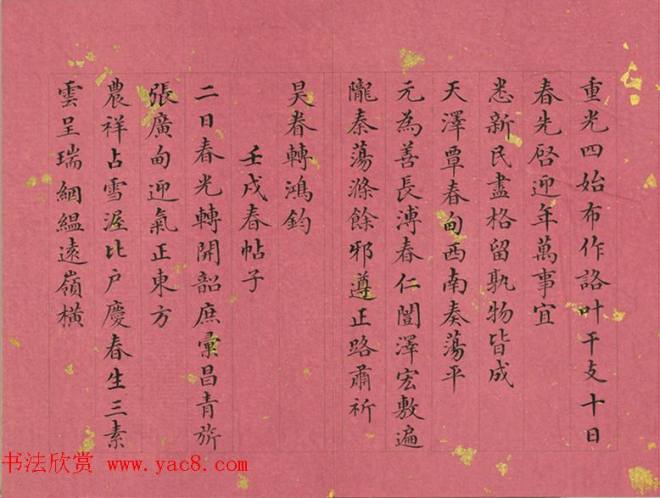 重光四始布作詻叶干支十日
春先啓迎年萬事宜
悉新民盡格留孰物皆成
天澤覃春甸西南奏蕩平
元為善長溥春仁闓澤宏敷遍
隴秦蕩滌餘邪遵正路肅祈
昊眷轉鴻鈞
壬戌春帖子
二日春光轉開韶庶彙昌青旂
張廣甸迎氣正東方
農祥占雪渥比户慶春生三素
雲呈瑞絪縕遠嶺橫
书法欣赏 www.yac8.com